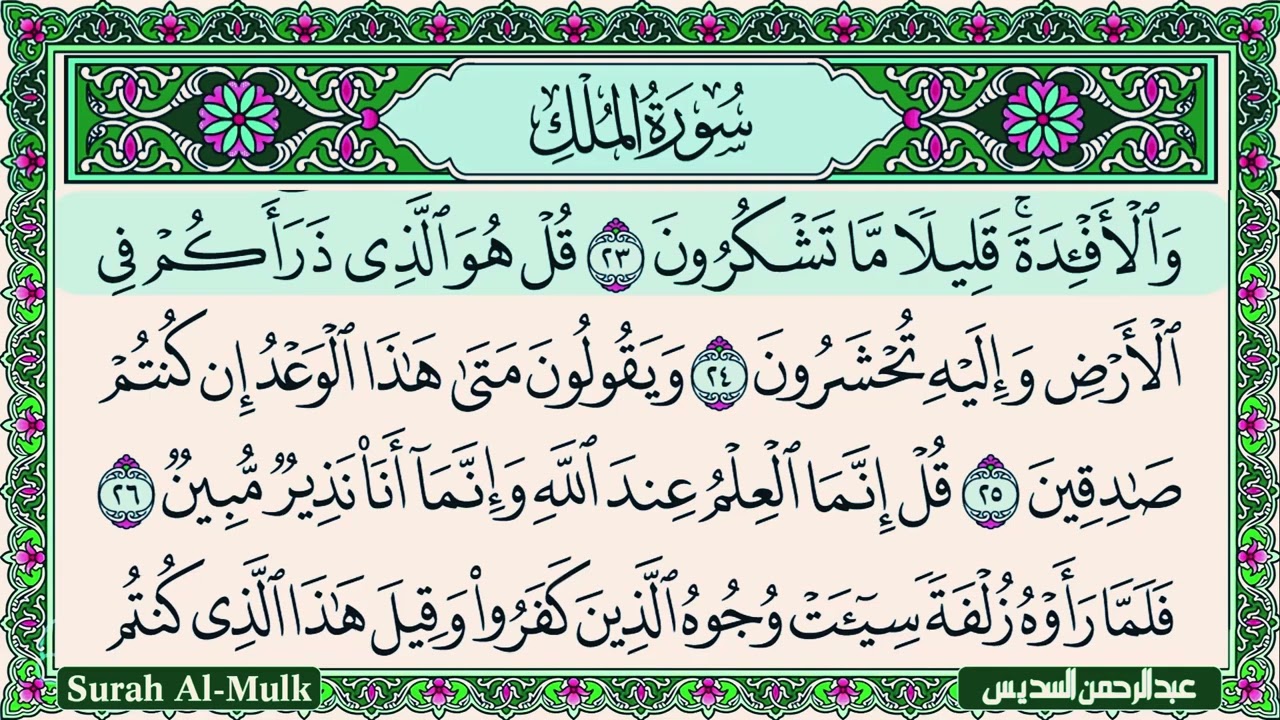 سُورَةُ المُلْكِ
وَٱلْأَفْـِٔدَةَ ۚ قَلِيلًا مَّا تَشْكُرُونَ ٢٣ قُلْ هُوَ ٱلَّذِى ذَرَأَكُمْ فِى
ٱلْأَرْضِ وَإِلَيْهِ تُحْشَرُونَ ٢٤ وَيَقُولُونَ مَتَىٰ هَٰذَا ٱلْوَعْدُ إِن كُنتُمْ
صَٰدِقِينَ ٢٥ قُلْ إِنَّمَا ٱلْعِلْمُ عِندَ ٱللَّهِ وَإِنَّمَآ أَنَا۠ نَذِيرٌ مُّبِينٌ ٢٦
فَلَمَّا رَأَوْهُ زُلْفَةً سِيٓـَٔتْ وُجُوهُ ٱلَّذِينَ كَفَرُوا۟ وَقِيلَ هَٰذَا ٱلَّذِى كُنتُم
Surah Al-Mulk
عبدالرحمن السديس